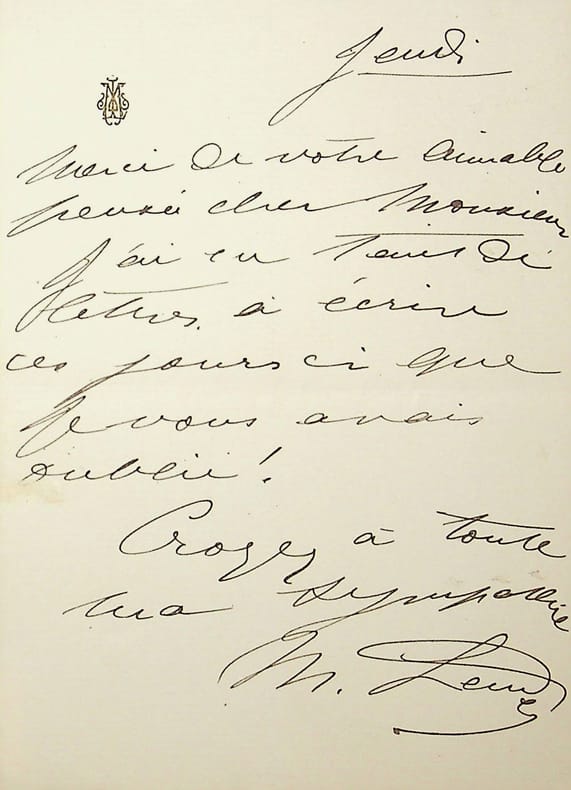 Jeudi
Merci de votre aimable
pensée cher Monsieur
J'ai eu tant de
lettres à écrire
ces jours ci que
je vous avais
oublié!
Croyez à toute
ma sympathie
M.